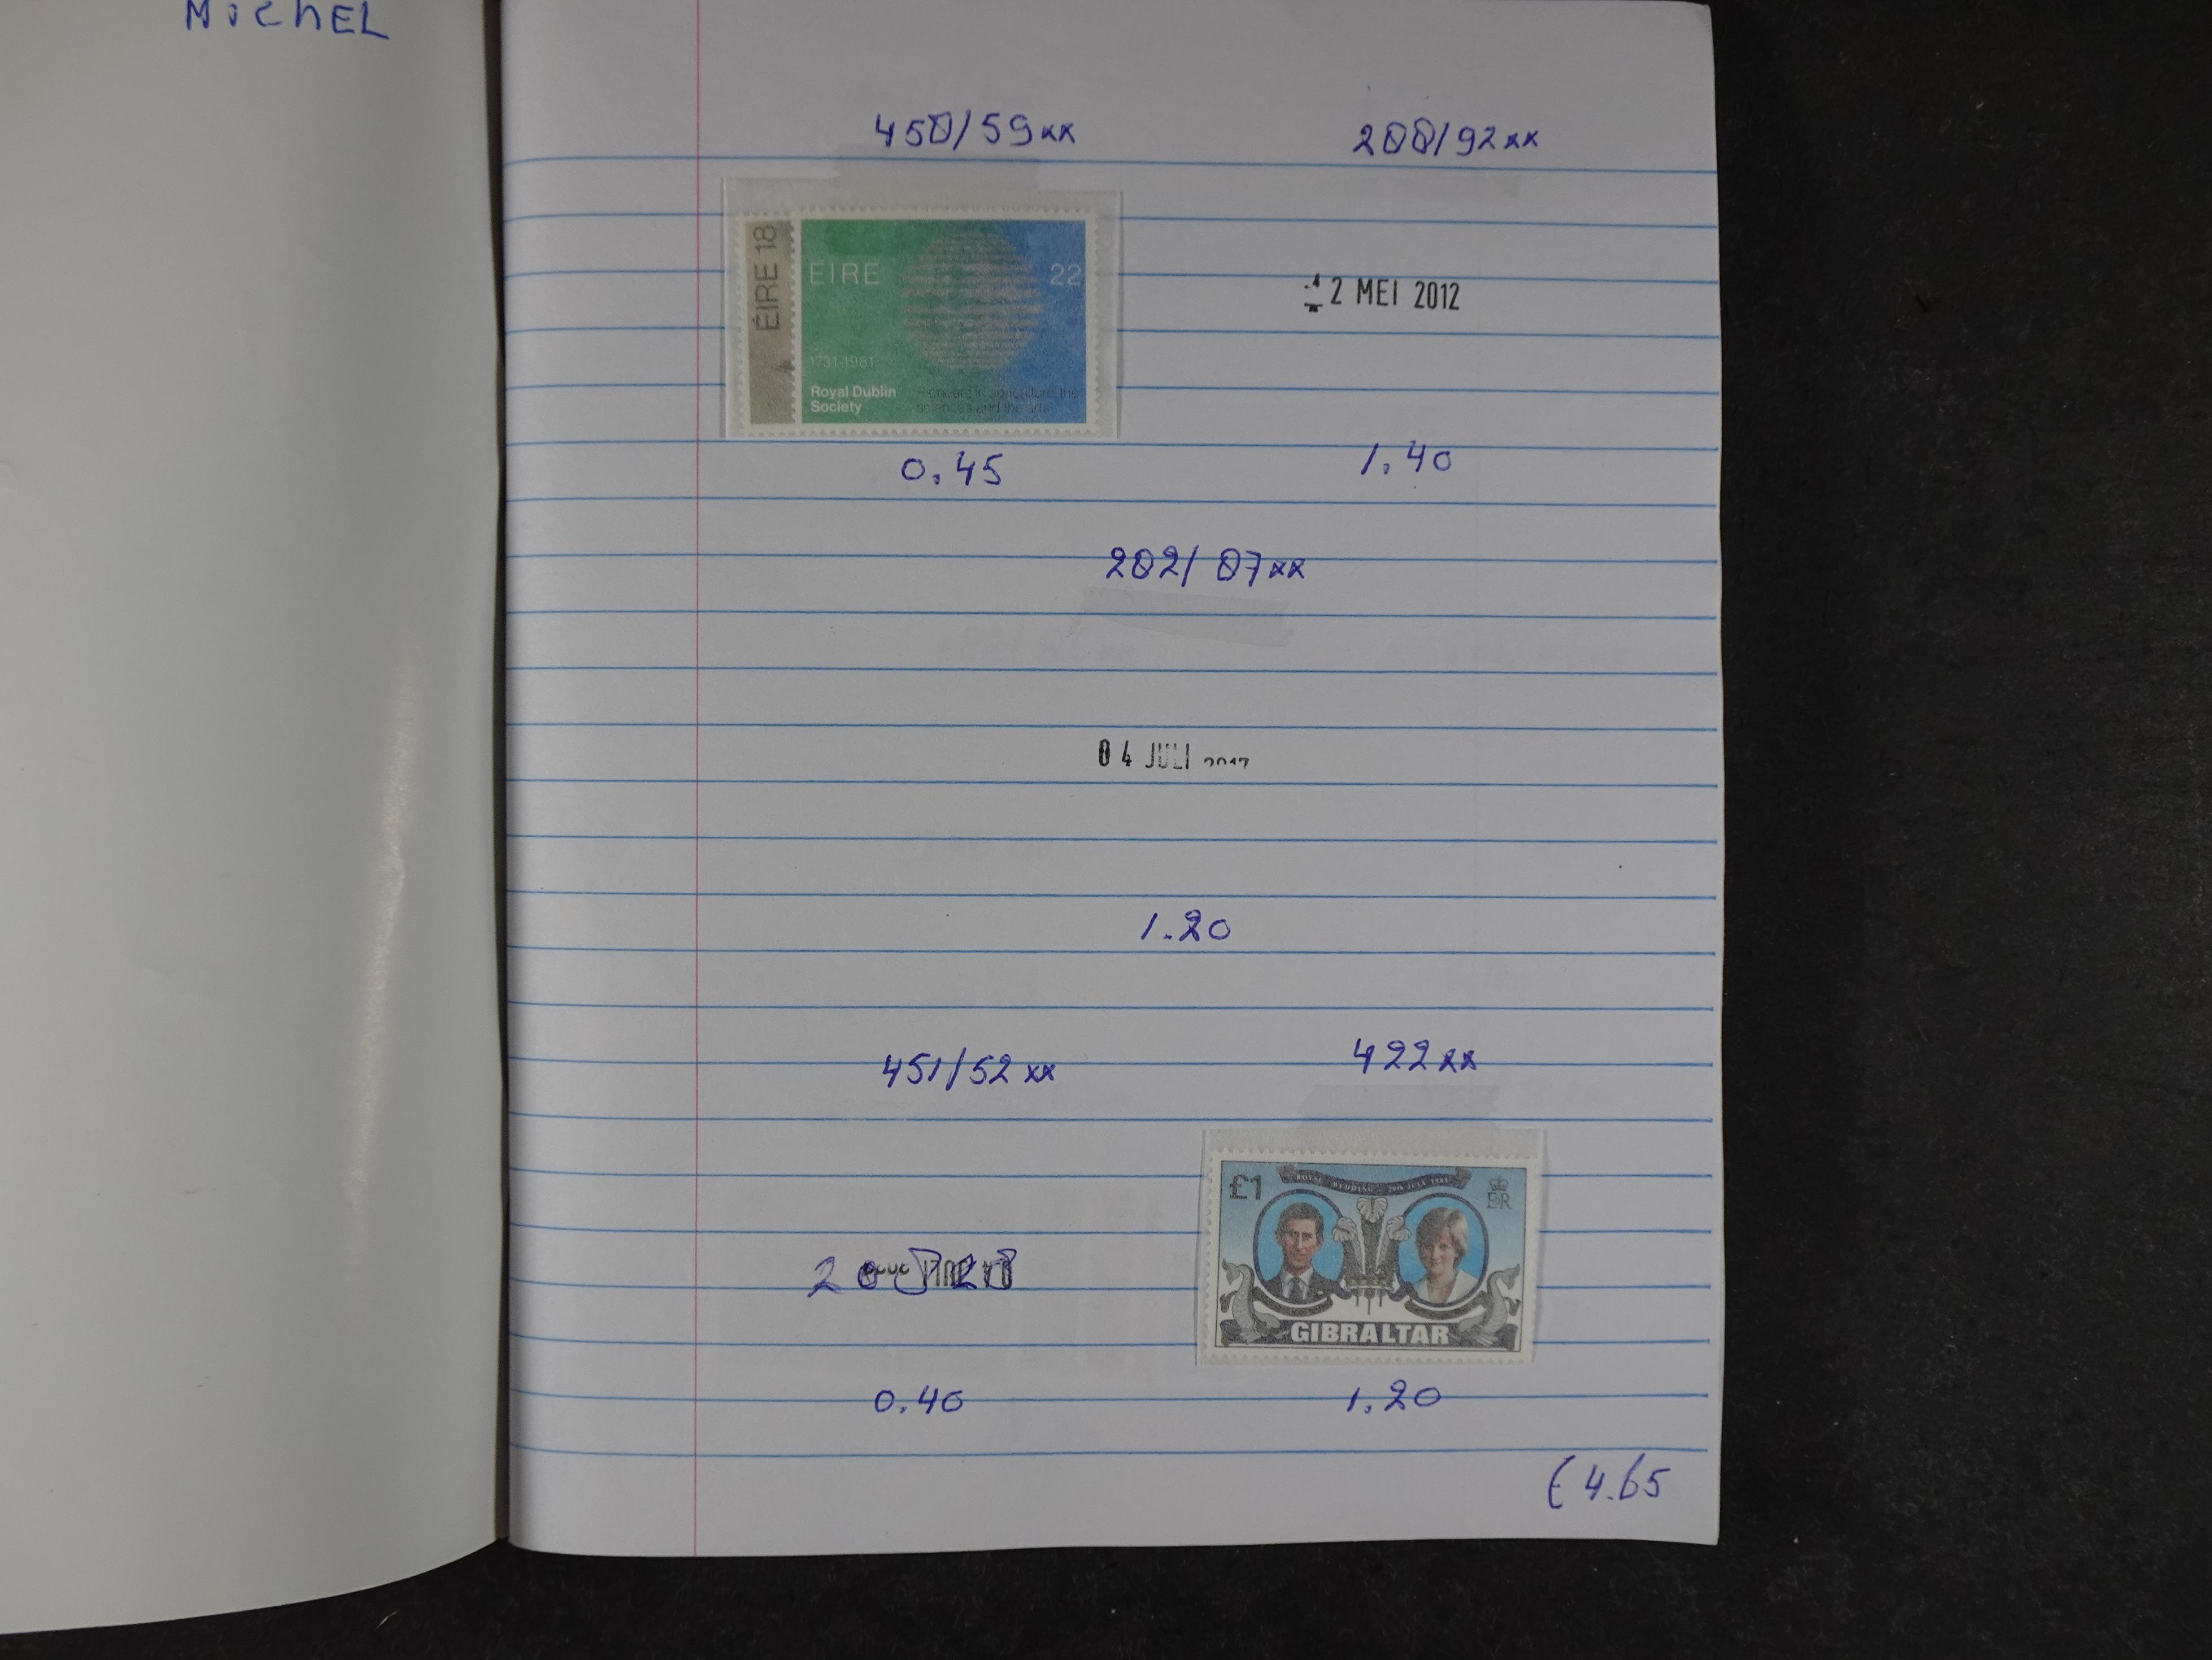 MichEL
450/59xx
200/92xx
ÉIRE 18
EIRE 22
1731-1981
Royal Dublin
Society
agriculture, the
sciences and the arts
2 MEI 2012
0.45
1.40
202/07xx
04 JULI 2017
1.20
451/52xx
422xx
£1
ROYAL WEDDING 29th JULY 1981
ER
GIBRALTAR
0.40
1.20
€4.65